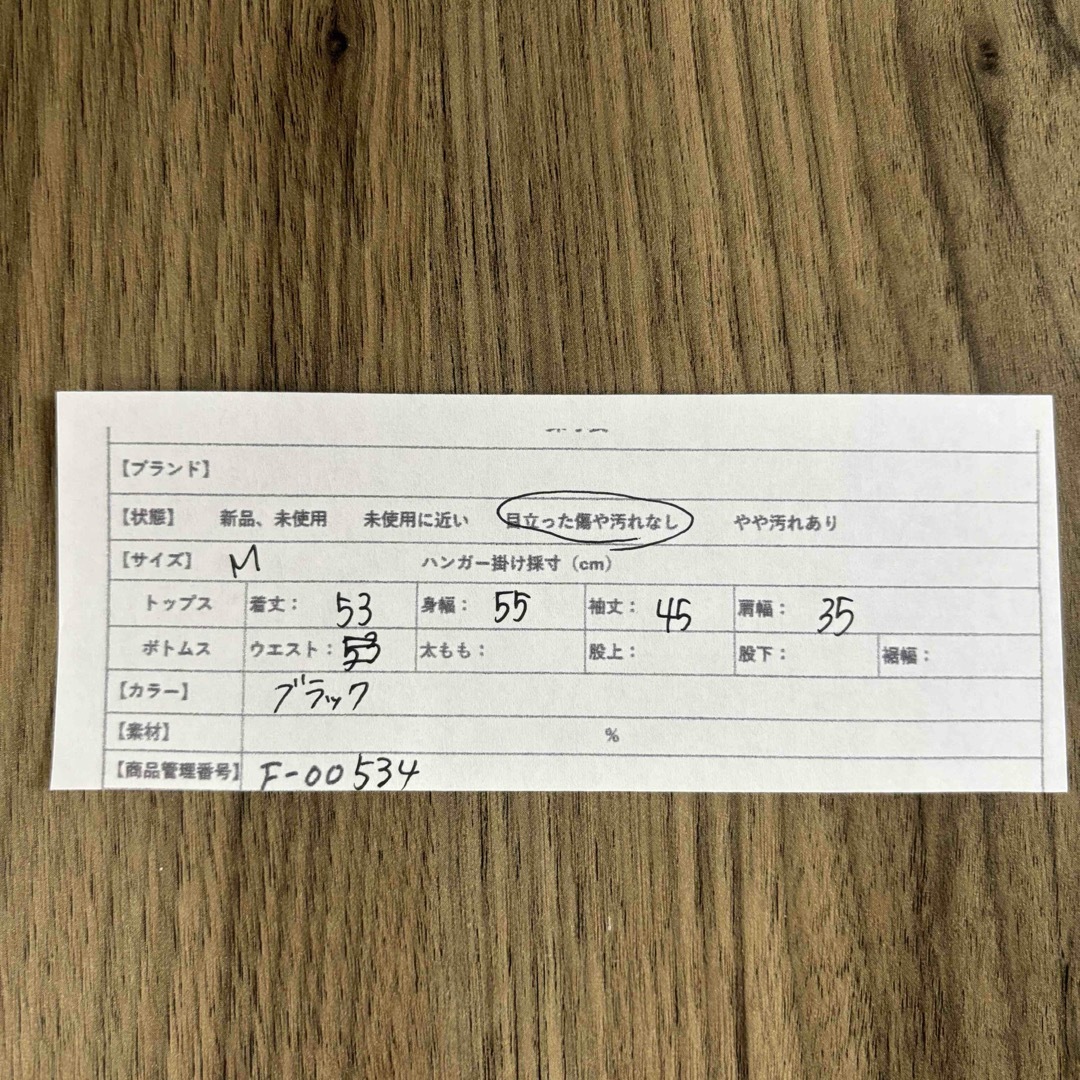 【ブランド】
【状態】 新品、未使用 未使用に近い 目立った傷や汚れなし やや汚れあり
【サイズ】 M ハンガー掛け採寸（cm）
トップス 着丈： 53 身幅： 55 袖丈： 45 肩幅： 35
ボトムス ウエスト： 太もも： 股上： 股下： 裾幅：
【カラー】 ブラック
【素材】 %
【商品管理番号】 F-00534